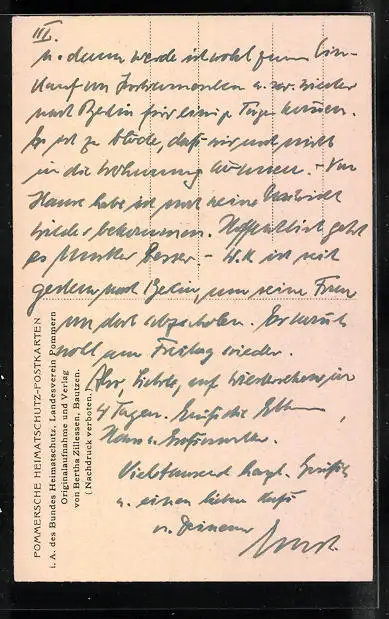 III.
u. dann werde ich wohl zum Ein-
kauf von Instrumenten u. zwr. wieder
nach Berlin für einige Tage kommen.
Es ist zu blöde, daß wir noch nicht
in die Wohnung können. - Von
Hans habe ich noch keine Nachricht
wieder bekommen. Hoffentlich geht
es Mutter besser - W.K. ist seit
gestern nach Berlin, um seine Frau
von dort abzuholen. Er kommt
wohl am Freitag wieder.
Also, Liebste, auf Wiedersehen in
4 Tagen. Grüße die Eltern,
Hans u. Großmutter.
Vieltausend herzl. Grüße
u. einen lieben Kuß
v. Deinem
POMMERSCHE HEIMATSCHUTZ-POSTKARTEN
i. A. des Bundes Heimatschutz, Landesverein Pommern
Originalaufnahme und Verlag
von Bertha Zillessen, Bautzen.
(Nachdruck verboten.)